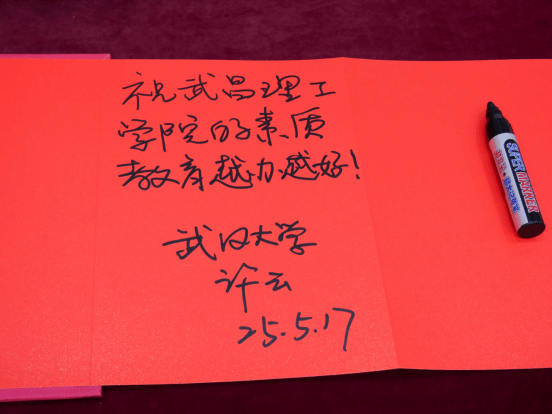 祝武昌理工
学院的素质
教育越办越好!
武汉大学
许云
25.5.17
SUPER MARKER